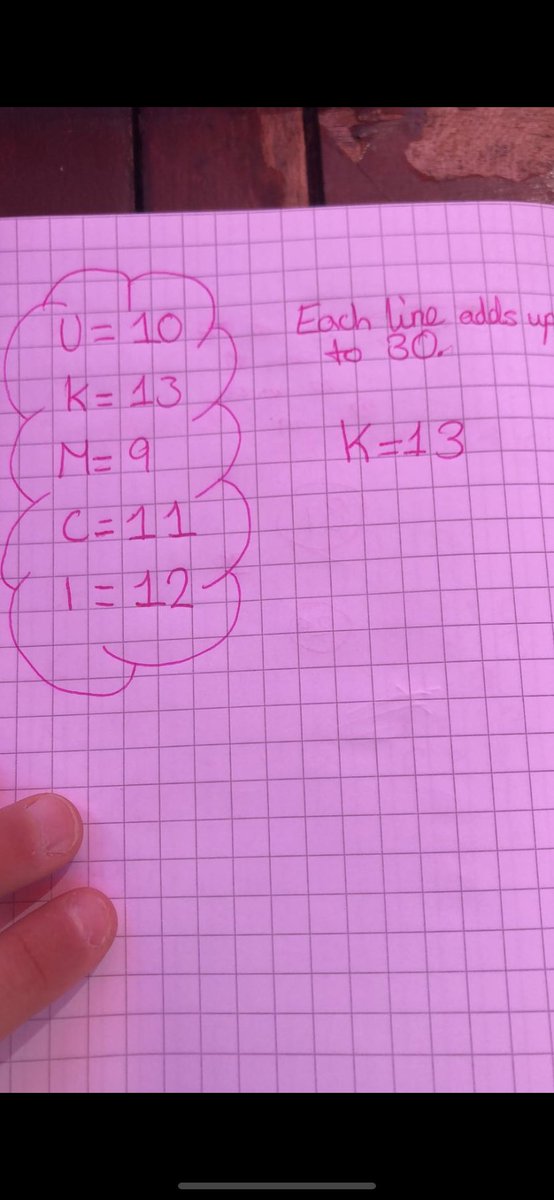 U = 10
K = 13
M = 9
C = 11
I = 12
Each line adds up
to 30.
K=13